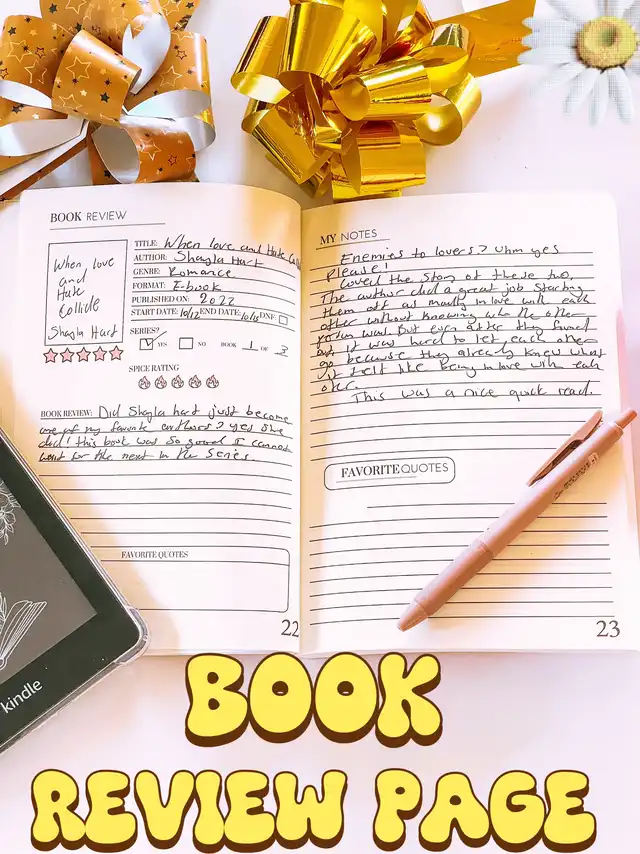 BOOK REVIEW
When love
and
Hate
Collide
Shayla Hart
TITLE: When love and Hate
AUTHOR: Shayla Hart
GENRE: Romance
FORMAT: E-book
PUBLISHED ON: 2022
START DATE: 10/12 END DATE: 10/13 DNF:
SERIES?
YES NO BOOK 1 OF 3
SPICE RATING
BOOK REVIEW: Did Shayla hart just become
one of my favorite authors? yes she
did! this book was so good I cannot
wait for the next in the series.
FAVORITE QUOTES
22
MY NOTES
Enemies to lovers? Uhm yes
please!
Loved the story of these two,
The author did a great job starting
them off as madly in love with each
other without knowing who the other
person was. But even after they found
out, it was hard to let each other
go because they already knew what
it felt like being in love with each
other.
This was a nice quick read.
FAVORITE QUOTES
23
kindle
BOOK
REVIEW PAGE